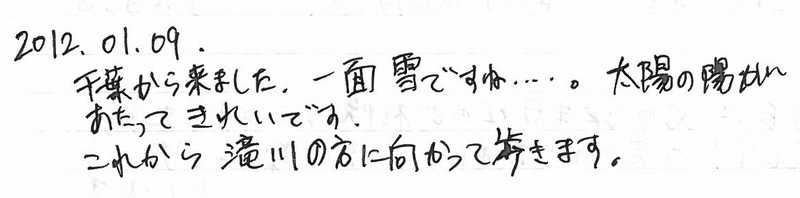 2012.01.09.
千葉から来ました。一面雪ですね……。太陽の陽が
あたってきれいです。
これから滝川の方に向かって歩きます。